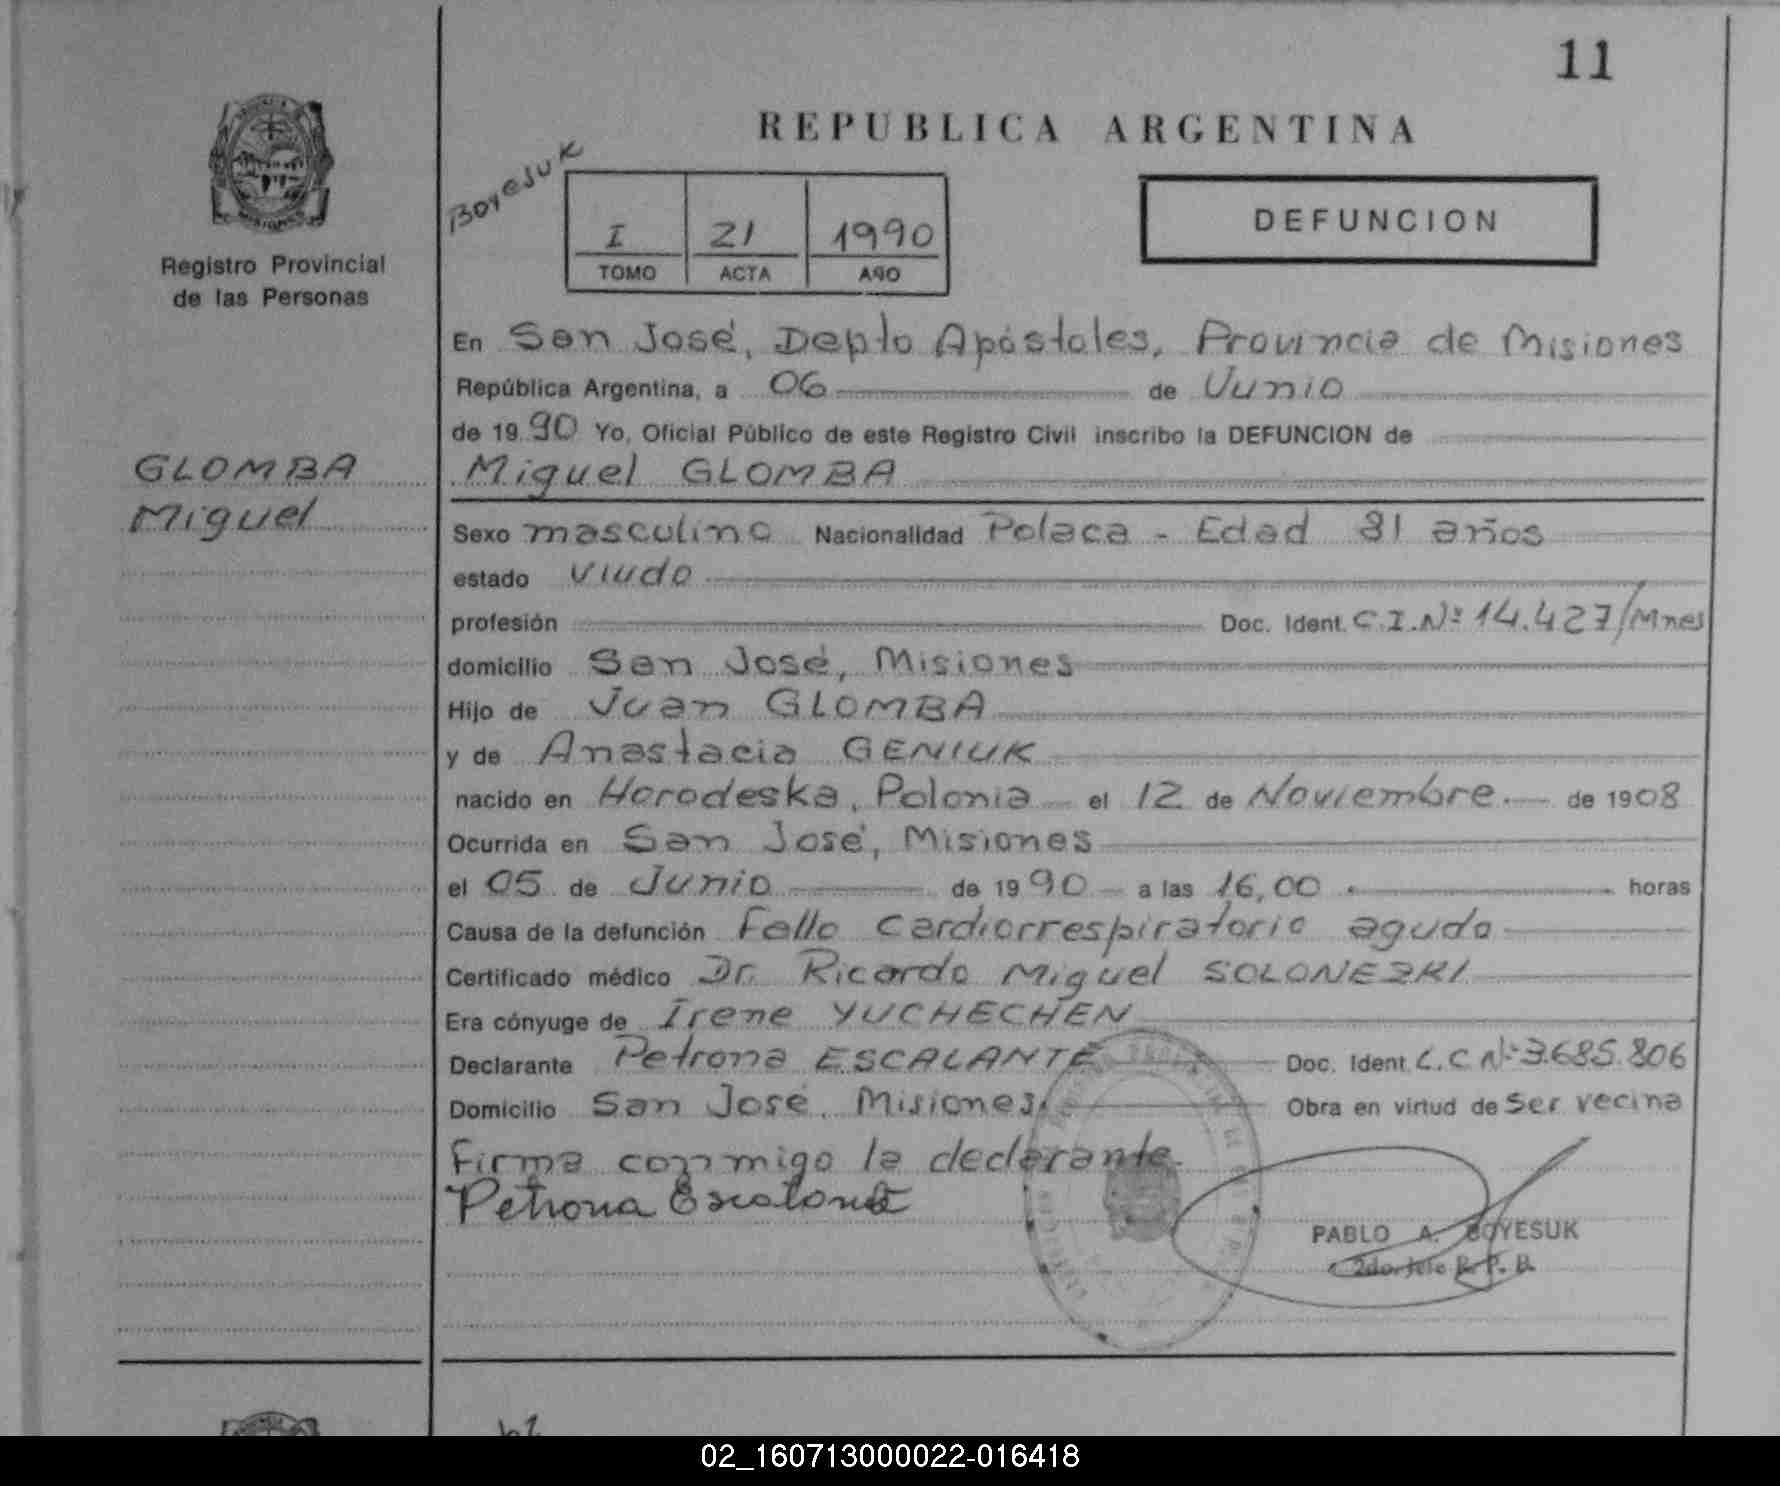 11
REPUBLICA ARGENTINA
Boyesuk
I 21 1990
TOMO ACTA AÑO
DEFUNCION
Registro Provincial
de las Personas
GLOMBA
Miguel
En San José, Depto Apóstoles, Provincia de Misiones
República Argentina, a 06 de Junio
de 1990 Yo, Oficial Público de este Registro Civil inscribo la DEFUNCION de
Miguel GLOMBA
Sexo masculino Nacionalidad Polaca - Edad 81 años
estado viudo
profesión Doc. Ident. C.I.Nº 14.427/Mnes
domicilio San José, Misiones
Hijo de Juan GLOMBA
y de Anastacia GENIUK
nacido en Horodeska, Polonia el 12 de Noviembre. de 1908
Ocurrida en San José, Misiones
el 05 de Junio de 1990 a las 16,00 horas
Causa de la defunción Fallo cardiorrespiratorio agudo
Certificado médico Dr. Ricardo Miguel SOLONESKI
Era cónyuge de Irene YUCHECHEN
Declarante Petrona ESCALANTE Doc. Ident. L.C Nº 3.685.806
Domicilio San José, Misiones. Obra en virtud de ser vecina
Firma conmigo la declarante.
Petrona Escalante
PABLO A. BOYESUK
2do. Jefe R. P. P.
02_160713000022-016418